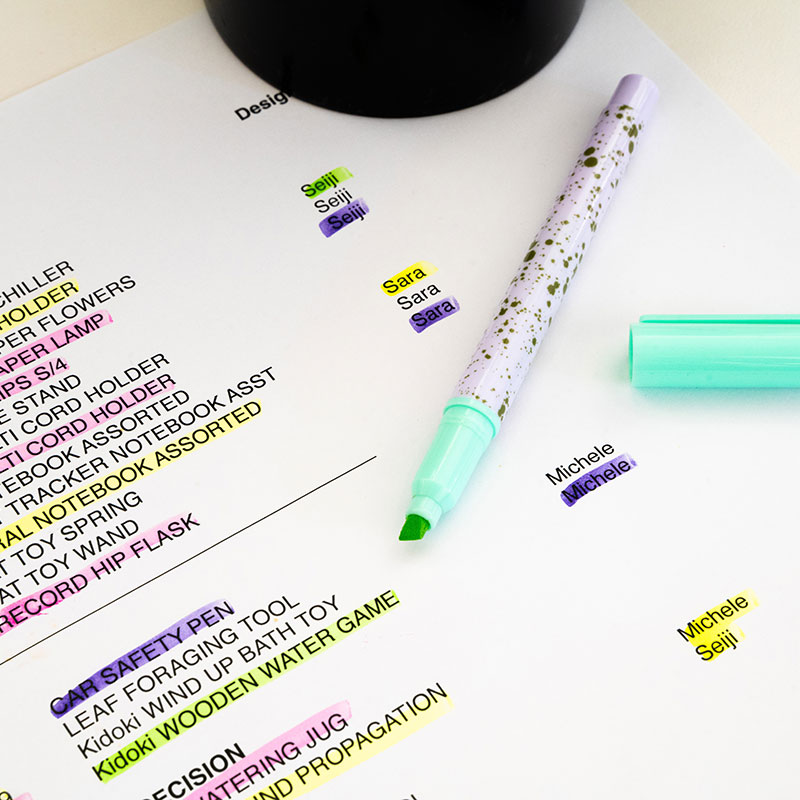 Seiji
Seiji
Seiji
Sara
Sara
Sara
Michele
Michele
Michele
Seiji
CHILLER
HOLDER
PER FLOWERS
APER LAMP
IPS S/4
E STAND
LTI CORD HOLDER
LTI CORD HOLDER
TEBOOK ASSORTED
TRACKER NOTEBOOK ASST
RAL NOTEBOOK ASSORTED
T TOY SPRING
AT TOY WAND
RECORD HIP FLASK
CAR SAFETY PEN
LEAF FORAGING TOOL
Kidoki WIND UP BATH TOY
Kidoki WOODEN WATER GAME
ECISION
WATERING JUG
ND PROPAGATION